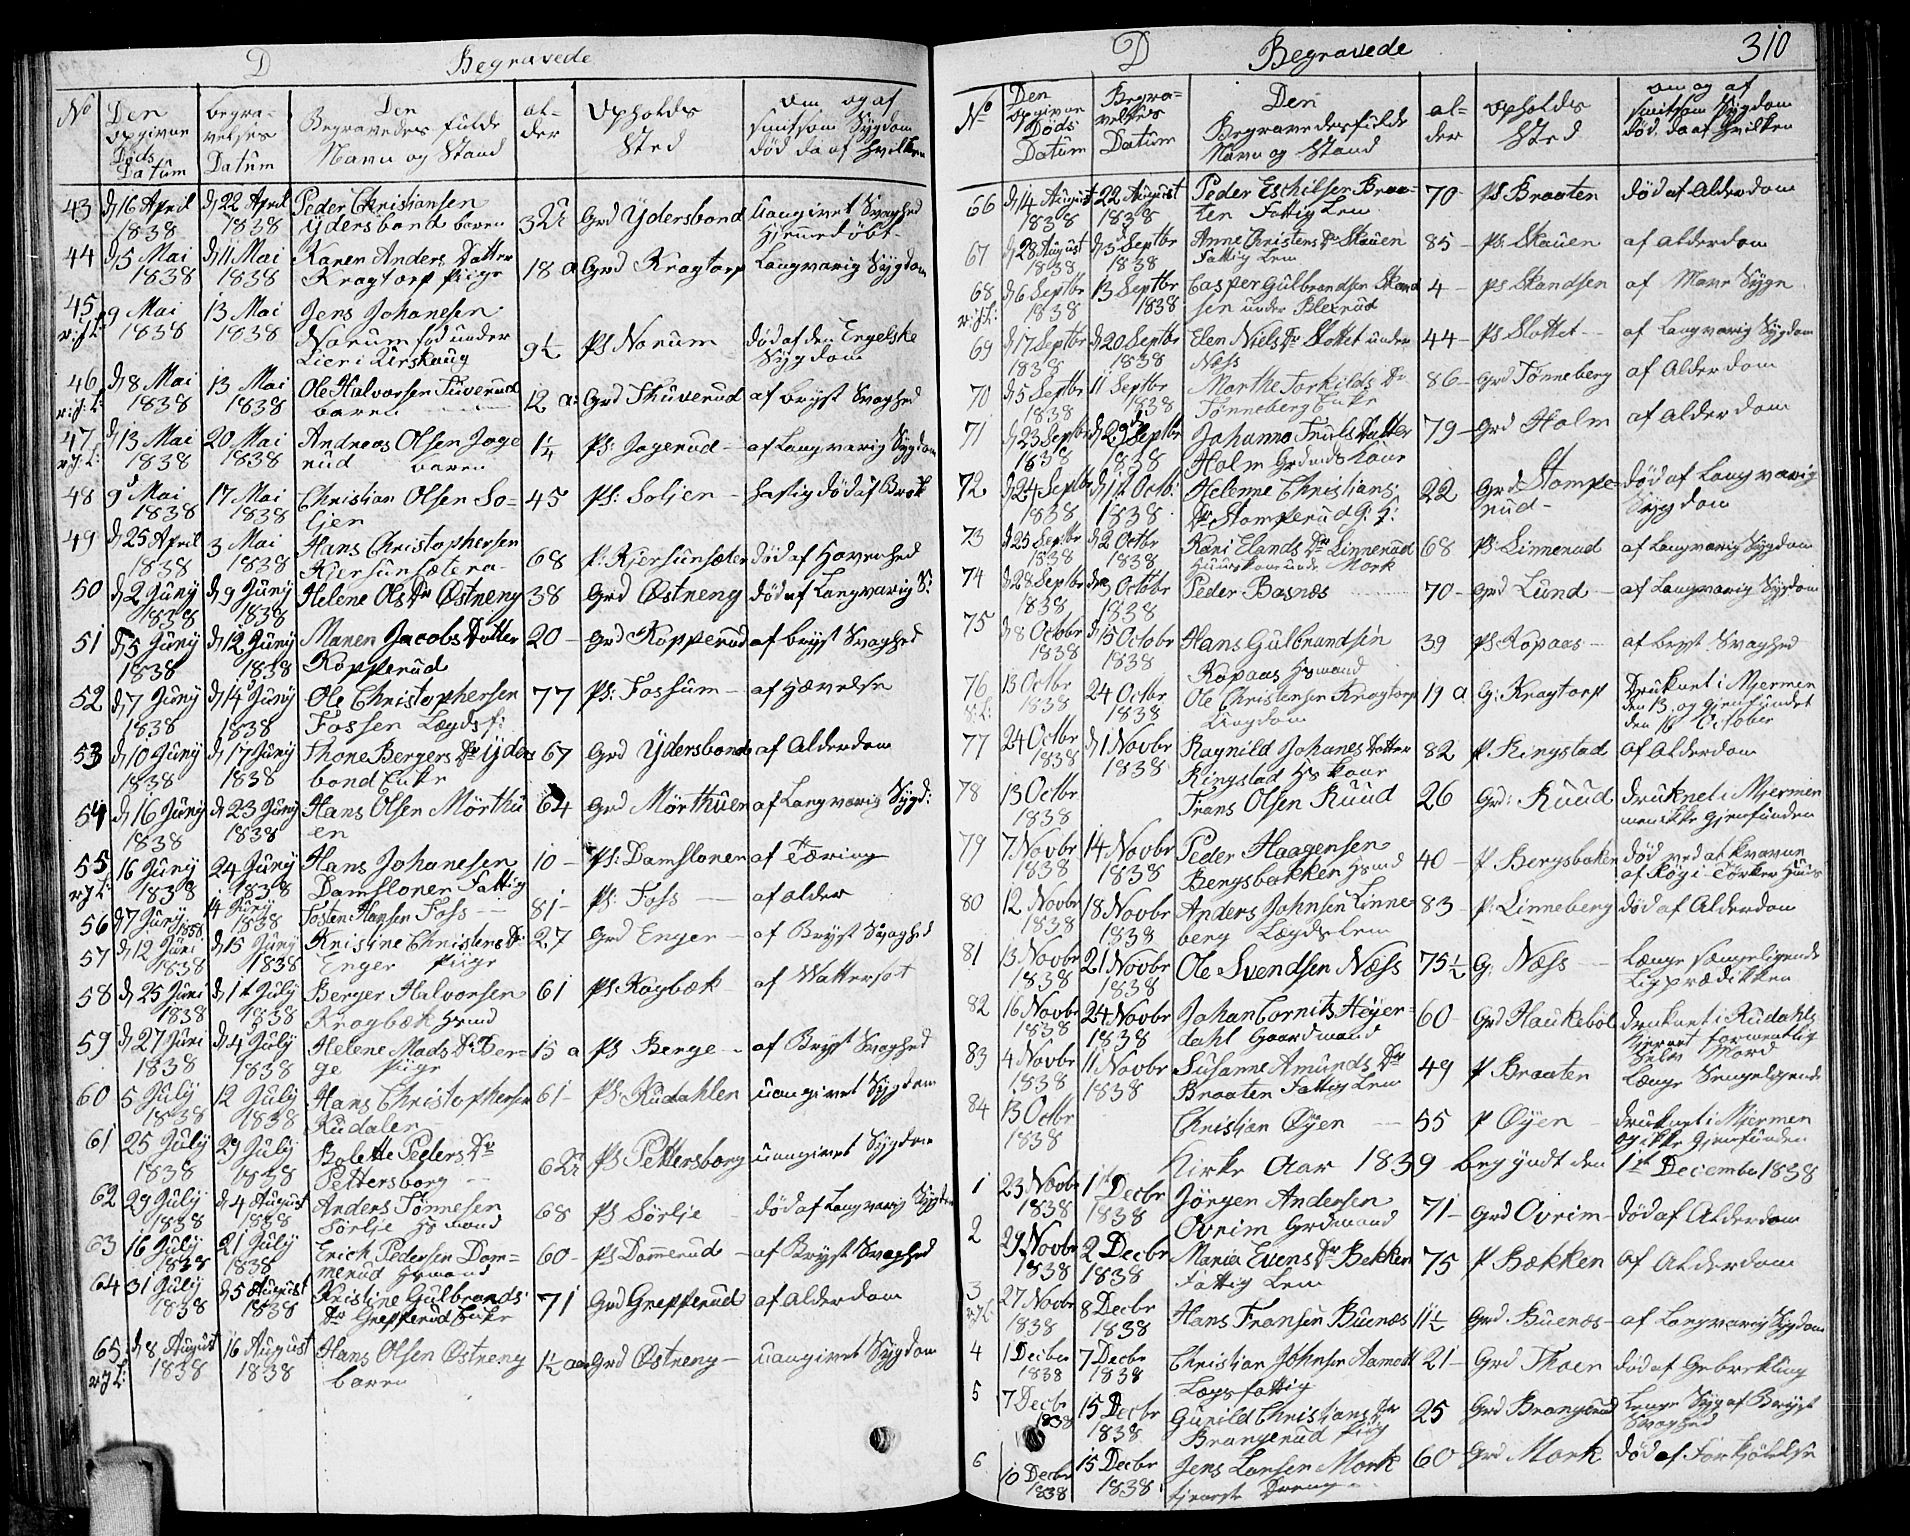 D Begravede
No Den opgivne Døds Datum begra-velses Datum Den Begravedes fulde Navn og Stand al-der Opholds Sted om og af smitsom Sygdom død da af hvilken
43 d 16 April 1838 d 22 April 1838 Peder Christiansen Ydersbond baren Grd Ydersbond uangivet Svaghed Hjemmedøbt
44 d 5 Mai 1838 d 11 Mai 1838 Karen Anders Datter Kragtorp Piige 18 a Grd Kragtorp Langvarig Sygdom
45 9 Mai 1838 13 Mai 1838 Jens Johanesen Norum fød under Lier i Kirskoug 9½ Ps Norum død af den Engelske Sygdom
46 d 8 Mai 1838 13 Mai 1838 Ole Halvorsen Tuverud baren 12 a: Grd Thuverud af bryst Svaghed
47 d 13 Mai 1838 20 Mai 1838 Andreas Olsen Joge rud baren 1¼ Ps: Jogerud - af Langvarig Sygdom
48 9 Mai 1838 17 Mai 1838 Christian Olsen So-lien 45 Ps: Solien - hastig død af Brok
49 d 25 April 1838 3 Mai 1838 Hans Christophersen 68 død af Hovenhed
50 d 2 Juny 1838 d 9 Juny 1838 Helene Ols Dr Østneng 38 Grd Østneng død af Langvarig S:
51 d 5 Juny 1838 d 12 Juny 1838 Maren Jacobs Datter Kopperud 20 - Grd Kopperud af bryst Svaghed
52 d 7 Juny 1838 d 14 Juny 1838 Ole Christophersen Fossen Lægdsf: 77 Ps: Fossum - af Hævelse
53 d 10 Juny 1838 d 17 Juny 1838 Thone Bergers Dr Yders bond Enke 67 Grd Ydersbond af Alderdom
54 d 16 Juny 1838 d 23 Juny 1838 Hans Olsen Mørthu en 64 Grd Mørthuen af Langvarig Sygd:
55 16 Juny 1838 24 Juny 1838 Hans Johanesen Damslonen Fattig 10 - Ps: Damslonen af Tæring
56 d 7 Juny 1838 14 Juny 1838 Tosten Hansen Foss 81 - Ps: Foss - af alder
57 d 12 Juni 1838 d 15 Juny 1838 Kristine Christens Dr Enger Piige 27 Grd Enger - af Bryst Svaghed
58 d 25 Juni 1838 d 1st July 1838 Berger Halvorsen Kragbæk Hsmd 61 Ps Kragbæk af Wattersot
59 d 27 Juni 1838 d 4 July 1838 Helene Mads Dr Ber-ge Piige 15 a Ps Berge - af Bryst Svaghed
60 5 July 1838 12 July 1838 Hans Christophersen Rudalen 61 - Ps: Rudahlen uangivet Sygdom
61 25 July 1838 29 July 1838 Bolette Peders Dr Pettersborg Ps Pettersborg uangivet Sygdom
62 29 July 1838 d 4 August 1838 Anders Tønnesen Sørlie Hsmand 68 Ps Sørlie - død af Langvarig Sygdom
63 16 July 1838 21 July 1838 Erich Pedersen Dom-merud Hsmand 60 - Ps Domerud - af Bryst Svaghed
64 31 July 1838 d 5 August 1838 Kristine Gulbrands Dr Grepperud Enke 71 Grd Grepperud af Alderdom
65 d 8 August 1838 16 August 1838 Hans Olsen Østneng baren 1½ aar Grd Østneng - uangivet Sygdom
D Begravede 310
No Den opgivne Døds Datum Begra-velses Datum Den Begravedes fulde Navn og Stand al-der opholds Sted om og af smitsom Sygdom død, da af hvilken
66 d 14 August 1838 22 August 1838 Peder Eschilsen Braa-ten Fattig Lem 70 - Ps Braaten død af Alderdom
67 d 28 August 1838 d 5 Septbr 1838 Anne Christens Dr Skauen Fattig Lem 85 - Ps: Skauen af Alderdom
68 d 6 Septbr 1838 13 Septbr 1838 Casper Gulbrandsen Skand sen under Blexrud 4 - Ps Skandsen af Mave Syge
69 d 17 Septbr 1838 d 20 Septbr 1838 Elen Niels Dr Slottet under Ness 44 - Ps Slottet - af Langvarig Sygdom
70 d 5 Septbr 1838 11 Septbr 1838 Marthe Torkilds Dr Tønneberg Enke 86 - Grd Tønneberg af Alderdom
71 d 23 Septbr 1838 d 29 Septbr 1838 Johanna Truls Datter Holm 79 - Grd Holm af Alderdom
72 d 24 Septbr 1838 d 1st Octb: 1838 Helenne Christians Dr Stomperud 22 Grd Stompe-rud - død af Langvarig Sygdom
73 d 25 Septbr 1838 d 2 Octbr 1838 Kari Elands Dr Linnerud under Mork 68 Ps: Linnerud af Langvarig Sygdom
74 d 28 Septbr 1838 3 Octobr 1838 Peder Basnæs 70 - Grd Lund - af Langvarig Sygdom
75 d 8 Octobr 1838 d 15 Octobr 1838 Hans Gulbrandsen Kopaas Hsmand 39 Ps Kopaas - af bryst Svaghed
76 13 Octbr 1838 24 Octbr 1838 Ole Christensen Kragtorp Ungdom 19 a G: Kragtorp Druknet i Mjermen den 13 og gjenfundet den 16 October
77 24 Octbr 1838 d 1 Novbr 1838 Ragnild Johanes Datter Ringstad Hs kone 82 P. Ringstad af Alderdom
78 13 Octbr 1838 Frans Olsen Ruud 26 Grd: Ruud druknet i Mjermen men ikke gjenfunden
79 7 Novbr 1838 14 Novbr 1838 Peder Haagensen Bergsbakken Hsmd 40 - P Bergsbaken død ved at kvævne af Røg i Tørke Huus
80 12 Novbr 1838 18 Novbr 1838 Anders Johnsen Linne berg Lægdslem 83 - P: Linneberg død af Alderdom
81 13 Novbr 1838 21 Novbr 1838 Ole Svendsen Næss 75½ G: Næss længe sængeliggende Ligprædikken
82 16 Novbr 1838 24 Novbr 1838 Johan Cornits Høyer-dahl Gaardmand 60 - Grd Haukebøl druknet i Rudahls Tjernet formentlig Selv Mord
83 4 Novbr 1838 11 Novbr 1838 Susanne Amunds Dr Braaten Fattig Lem 49 P Braaten Længe Sengeligende
84 13 Octbr 1838 Christian Øyen - 55 P Øyen - druknet i Mjermen og ikke gjenfunden
Kirke Aar 1839 begyndt den 1st December 1838
1 23 Novbr 1838 1st Decbr 1838 Jørgen Andersen Ovrim Grdmand 71 - Grd Ovrim - død af Alderdom
2 29 Novbr 1838 2 Decbr 1838 Maria Evens Dr Bekken Fattig Lem 75 P Bækken af Alderdom
3 27 Novbr 1838 8 Decbr 1838 Hans Fransen Buenæs 11½ Grd Buenæs - af Langvarig Sygdom
4 1 Decbr 1838 7 Decbr 1838 Christian Johnsen Aamodt Lægsfattig 21 - Grd Thoen død af Gebrekling
5 7 Decbr 1838 15 Decbr 1838 Gunild Christians Dr Brangerud Piig 25 Grd Brangerud Længe Syg af Bryst Svaghed
6 10 Decbr 1838 15 Decbr 1838 Jens Larsen Mork tjeneste Dreng 60 - Grd Mork død af Forkjølelse